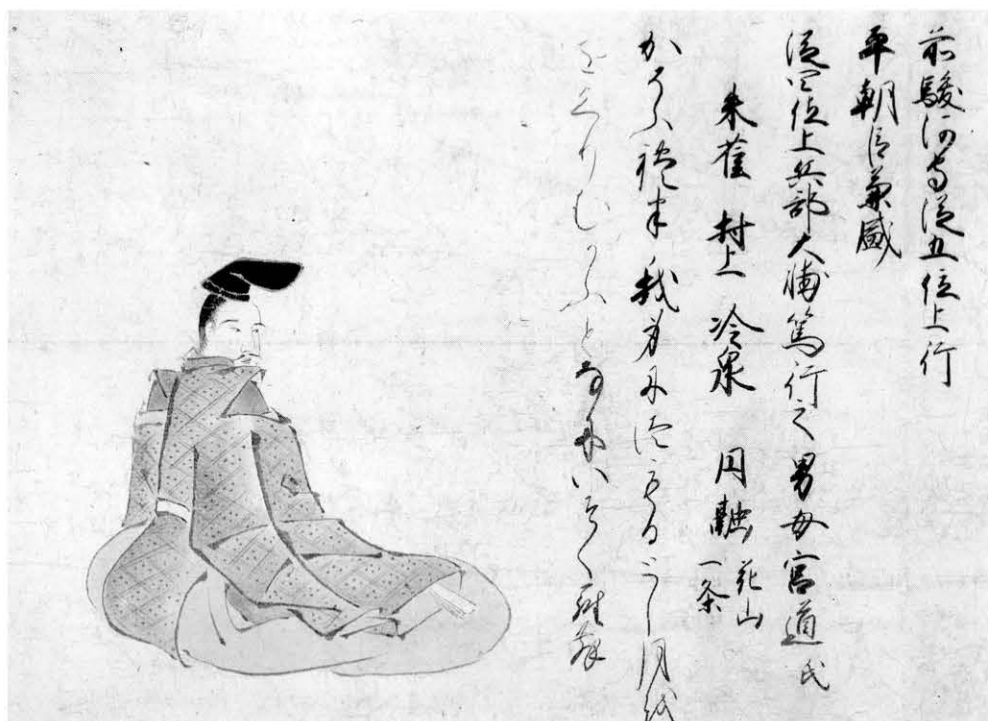 前駿河守従五位上行
平朝臣兼盛
従四位上兵部大輔篤行之男母宮道氏
朱雀 村上 冷泉 円融 花山
一条
かそふれ者我身尓徒もるとし月越
をくりむかふと奈尓いそく羅舞